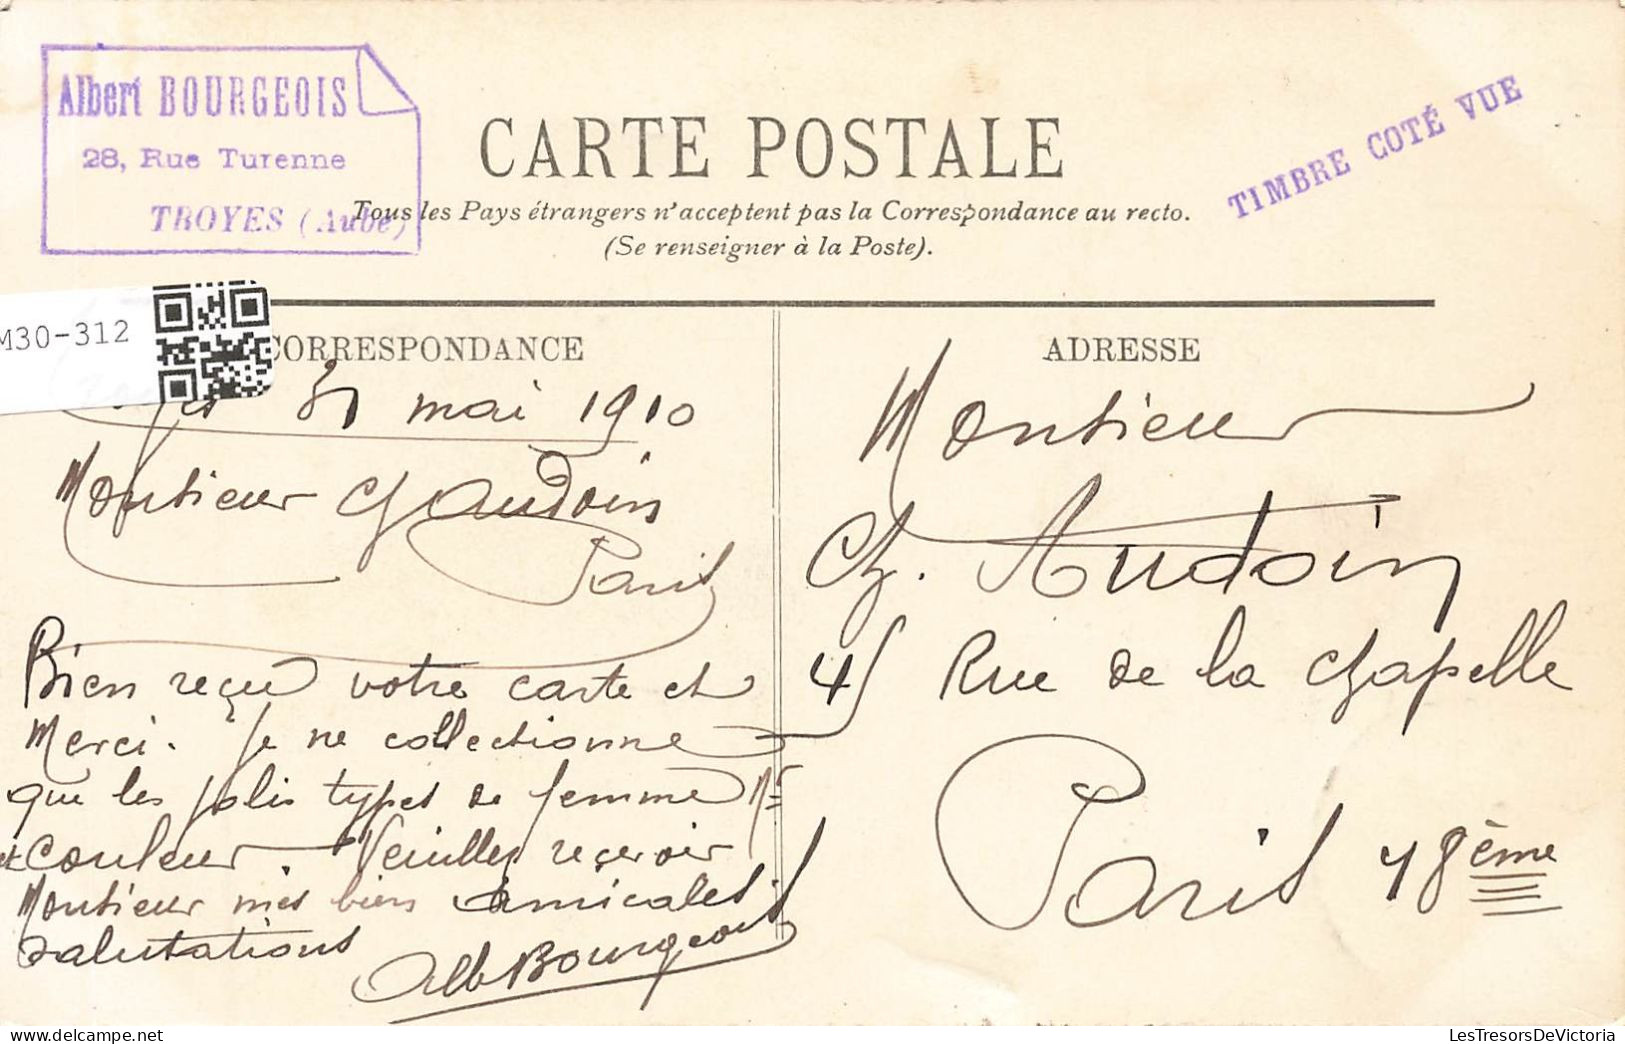 Albert BOURGEOIS
28, Rue Turenne
TROYES (Aube)
CARTE POSTALE
TIMBRE COTÉ VUE
Tous les Pays étrangers n'acceptent pas la Correspondance au recto.
(Se renseigner à la Poste).
M30-312
CORRESPONDANCE
31 mai 1910
Monsieur Ch Audoin
Paris
Bien reçu votre carte et
Merci. Je ne collectionne
que les jolis types de femme
et couleur. Veuillez reçevoir
Monsieur mes bien amicales
salutations
Alb Bourgeois
ADRESSE
Monsieur
Ch. Audoin
45 Rue de la Chapelle
Paris 18ème
LesTresorsDeVictoria